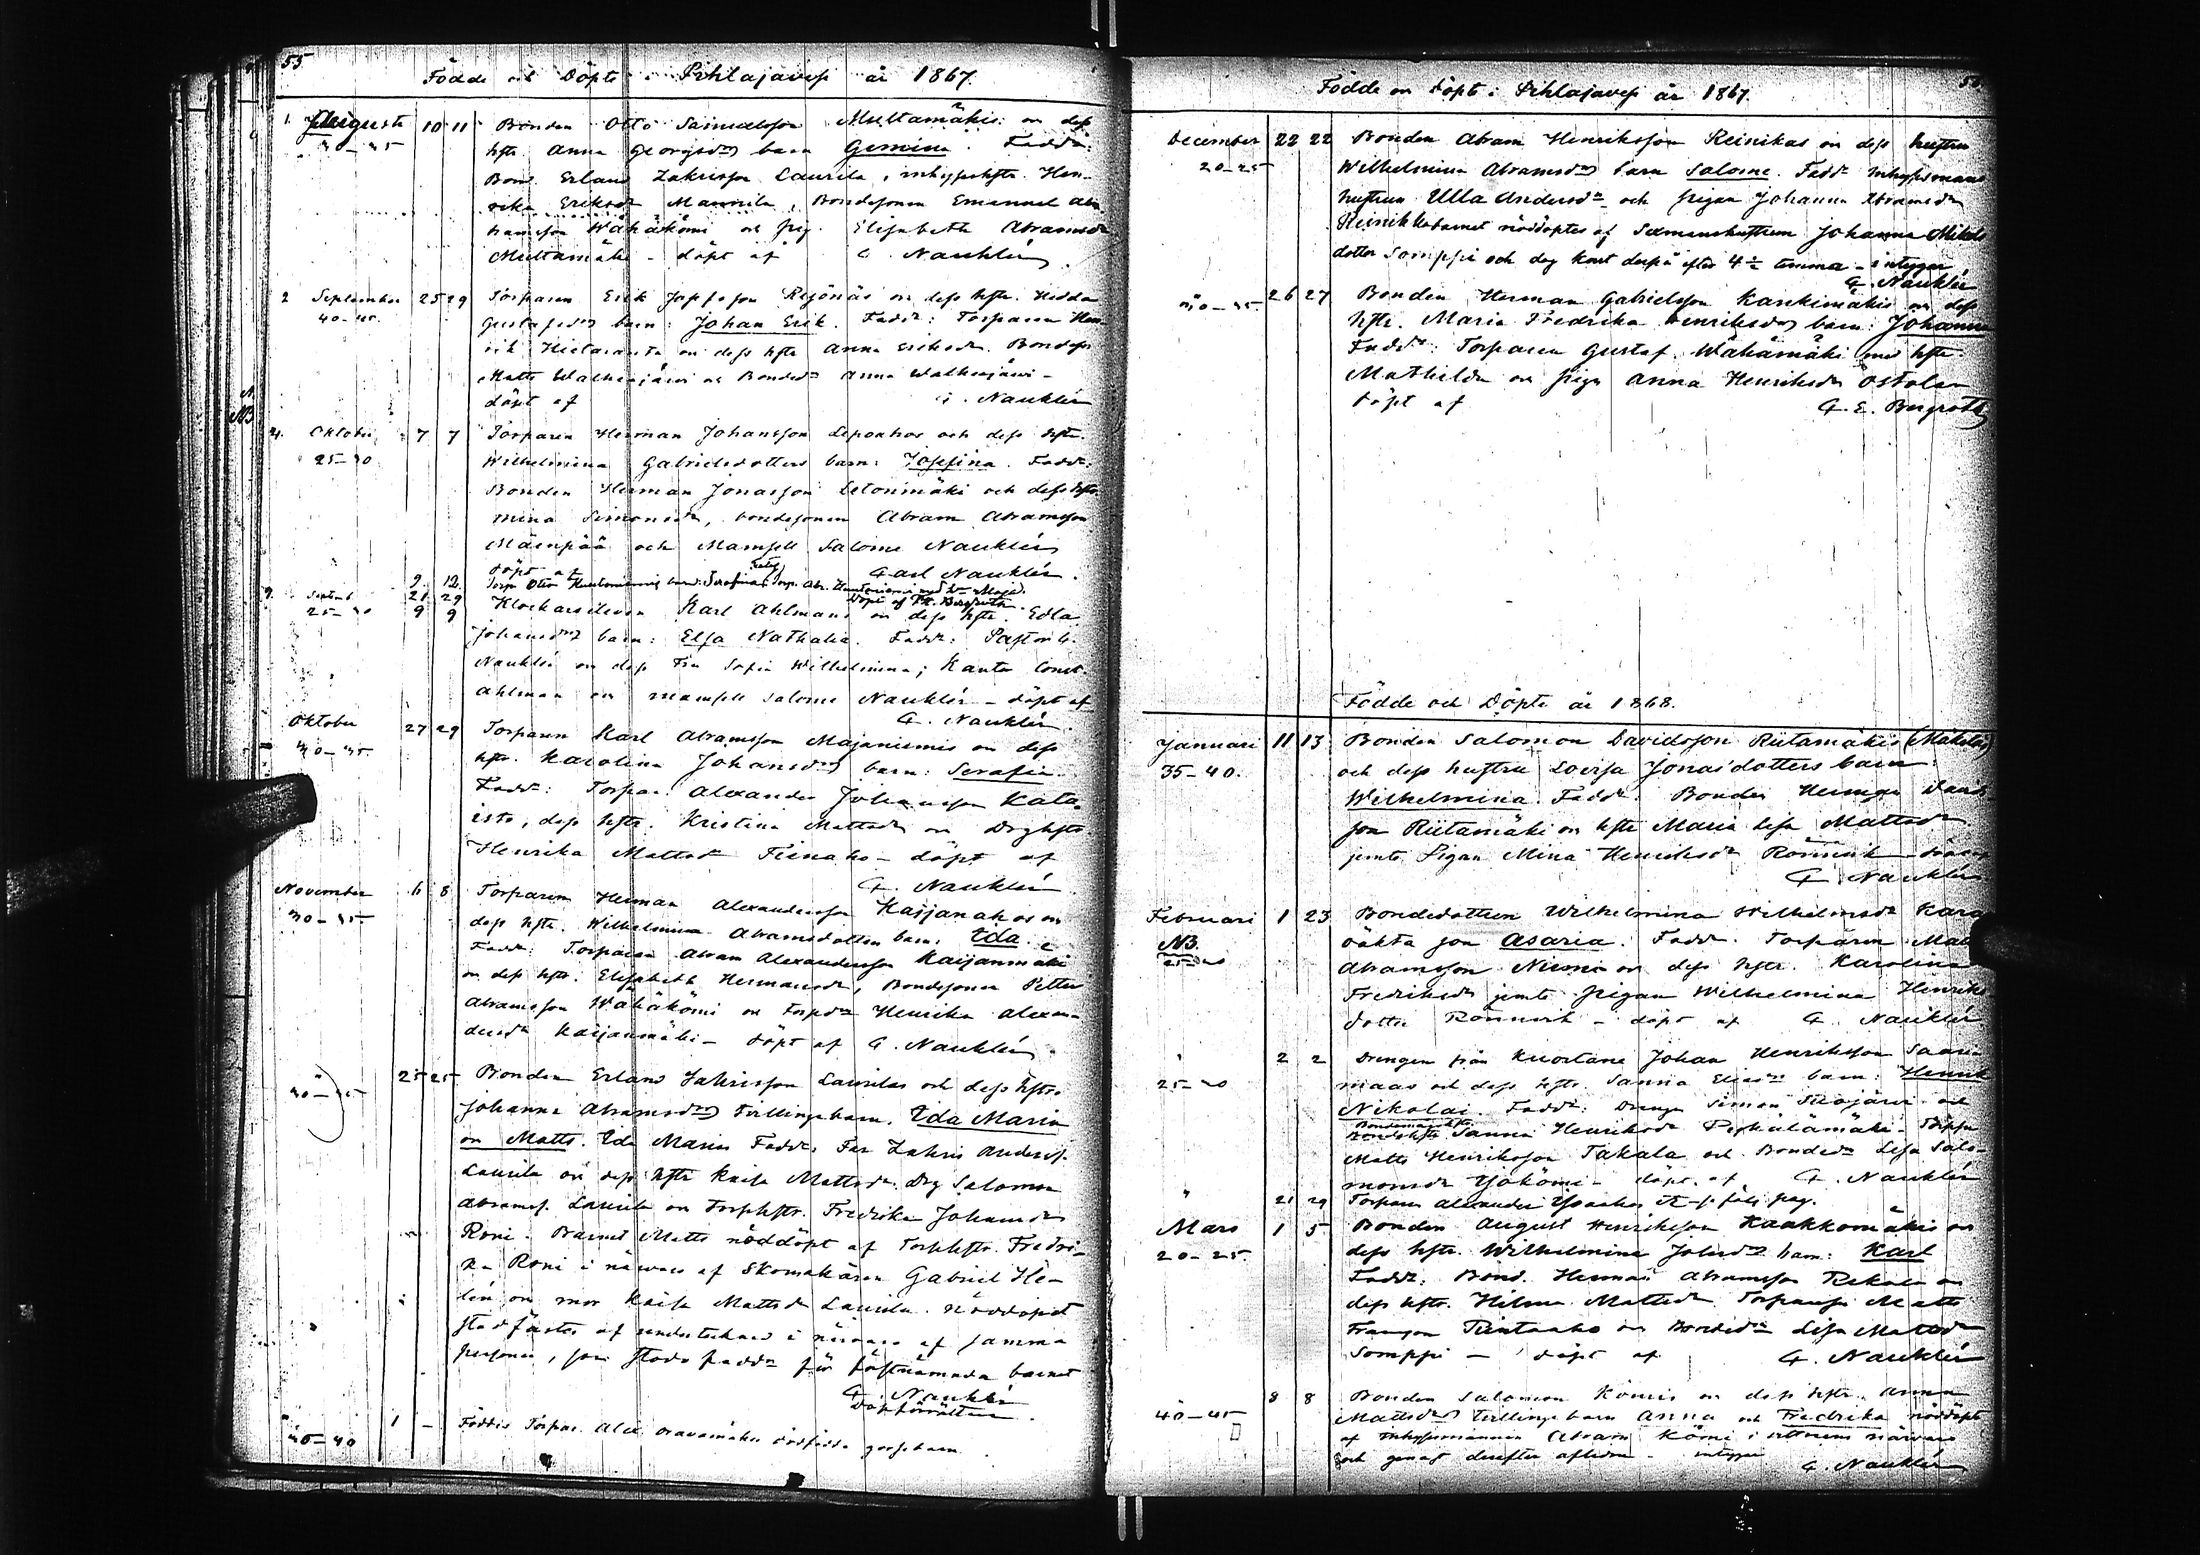 55
Födde och Döpte i Pihlajavesi år 1867.
1. Augusti 10 11 Bonden Otto Samuelsson Multamäkis on dess
30-35 hstr. Anna Georgsdr barn Gemina. Fadd:
Bond. Erland Zakrisson Laurila, inhyseshstr. Hen-
rika Eriksdr Mannila, Bondesonen Emanuel Abra
hamsson Wähäkömi och pig. Elisabeth Abramsdr
Multamäki - döpt af G. Nauklér
2 September 25 29 Torparen Erik Josefsson Rejönäs on dess hstr. Hedda
40-45. Gustafsdrs barn: Johan Erik. Faddr: Torparen Hen-
rik Hietaranta on dess hstr Anna Eriksdr. Bondess
Matts Walkeajärvi och Bondedr Anna Walkeajärvi -
döpt af G. Nauklér
N.
NB
4. Oktober 7 7 Torparen Herman Johansson Lepoahos och dess hstr.
25-30 Wilhelmina Gabrielsdotters barn: Josefina. Faddr:
Bonden Herman Jonasson Letonmäki och dess hstr.
Mina Simonsdr, bondesonen Abram Abramsson
Mäenpää och Mamsell Salome Nauklér
döpt af Carl Nauklér.
9. 12. Torp. Otto barn: Serafina
Septemb 21 29 Döpt af Bergroth
25-30 9 9 Klockareeleven Karl Ahlmans on dess hstr. Edla
Johansdrs barn: Elsa Nathalia. Faddr: Pastor G.
Nauklér on dess Fru Sofia Wilhelmina; Kantor Const.
Ahlman on mamsell Salome Nauklér - döpt af
G. Nauklér
Oktober 27 29 Torparen Karl Abramsson Majaniemis on dess
30-35. hstr. Karolina Johansdrs barn: Serafia.
Faddr: Torpar. Alexander Johansson Kata-
isto, dess hstr. Kristina Mattsdr on Drghstr
Henrika Mattsdr Tienaho - döpt af
G. Nauklér
November 6 8 Torparen Herman Alexandersson Kaijanahos on
30-35 dess hstr. Wilhelmina Abramsdotters barn: Ida.
Faddr: Torparen Abram Alexandersson Kaijanmäki
on dess hstr. Elisabeth Hermansdr, Bondesonen Petter
Abramsson Wähäkömi on Torpdr Henrika Alexan-
dersdr Kaijanmäki - döpt af G. Nauklér.
25 25 Bonden Erland Zakrisson Laurilas och dess hstr.
Johanna Abramsdrs Tvillingebarn. Ida Maria
on Matts. Ida Marias Faddr: Far Zakris Anderss.
Laurila on dess hstr Kaisa Mattsdr. Drg Salomon
Abramss. Laurila on Torphstr. Fredrika Johansdr
Roni. Barnet Matts nöddöpt af Torphstr. Fredri-
ka Roni i närvaro af Skomakaren Gabriel He-
lén on mor Kaisa Mattsdr Laurila. Nöddopet
stadfästes af undertecknad i närvaro af samma
personer, som stodo faddr för förstnämnda barnet
G. Nauklér
Döpförrättare.
1 - Föddes Torpar. Alex. Oravamäkis dödfödda gossebarn.

Födde on Döpt i Pihlajavesi år 1867.
December 22 22 Bonden Abram Henriksson Reinikas on dess hustru
20-25 Wilhelmina Abramsdrs barn Salome. Faddr Inhysesmans
hustrun Ulla Andersdr och pigan Johanna Abramsdr
Reinikka barnet nöddöptes af Sexmanshustrun Johanna Mikels
dotter Somppi och dog kort derpå efter 4½ timma - intygar
G. Nauklér
26 27 Bonden Herman Gabrielsson Kaukimäkis on dess
hstr. Maria Fredrika Henriksdrs barn: Johanna
Faddr: Torparen Gustaf Wähämäki med hstr.
Mathilda on pigan Anna Henriksdr Ostola
döpt af G. E. Bergroth
Födde och Döpte år 1868.
Januari 11 13 Bonden Salomon Davidsson Riitamäkis (Mäkelä)
35-40. och dess hustru Lovisa Jonasdotters barn:
Wilhelmina. Faddr. Bonden Herman Davids-
son Riitamäki on hstr Maria Lisa Mattsdr
jemte Pigan Mina Henriksdr Rönnvik
G. Nauklér
Februari 1 23 Bondedottren Wilhelmina Wilhelmsdr
NB. oäkta son Asaria. Faddr. Torparen
Abramsson Niemi on dess hstr. Karolina
Fredriksdr jemte pigan Wilhelmina Henriks
dotter Rönnvik - döpt af G. Nauklér
2 2 Drengen från Kuortane Johan Henriksson Saari-
25-30 maas och dess hstr. Sanna Eliasdrs barn: Henrik
Nikolai. Faddr: Dreng Simon och
Bondemanshstr Sanna Henriksdr
Matts Henriksson Takala och Bondedr Lisa Salo-
monsdr Yjökömi - döpt af G. Nauklér
21 29 Torparen Alexander
Mars 1 5 Bonden August Henriksson Kaakkomäkis on
20-25 dess hstr. Wilhelmina Johsdrs barn: Karl
Faddr: Bond. Herman Abramsson Rekola on
dess hstr. Hilma Mattsdr, Torpareson Matts
Fransson on Bondedr Lisa Mattsdr
Somppi - döpt af G. Nauklér
8 8 Bonden Salomon Kömis on dess hstr. Anna
40-45 Mattsdrs Tvillingebarn Anna och Fredrika nöddöpt
af Inhysesmannen Abram Kömi i vittnens närvaro
och genast derefter aflidne - intygar G. Nauklér